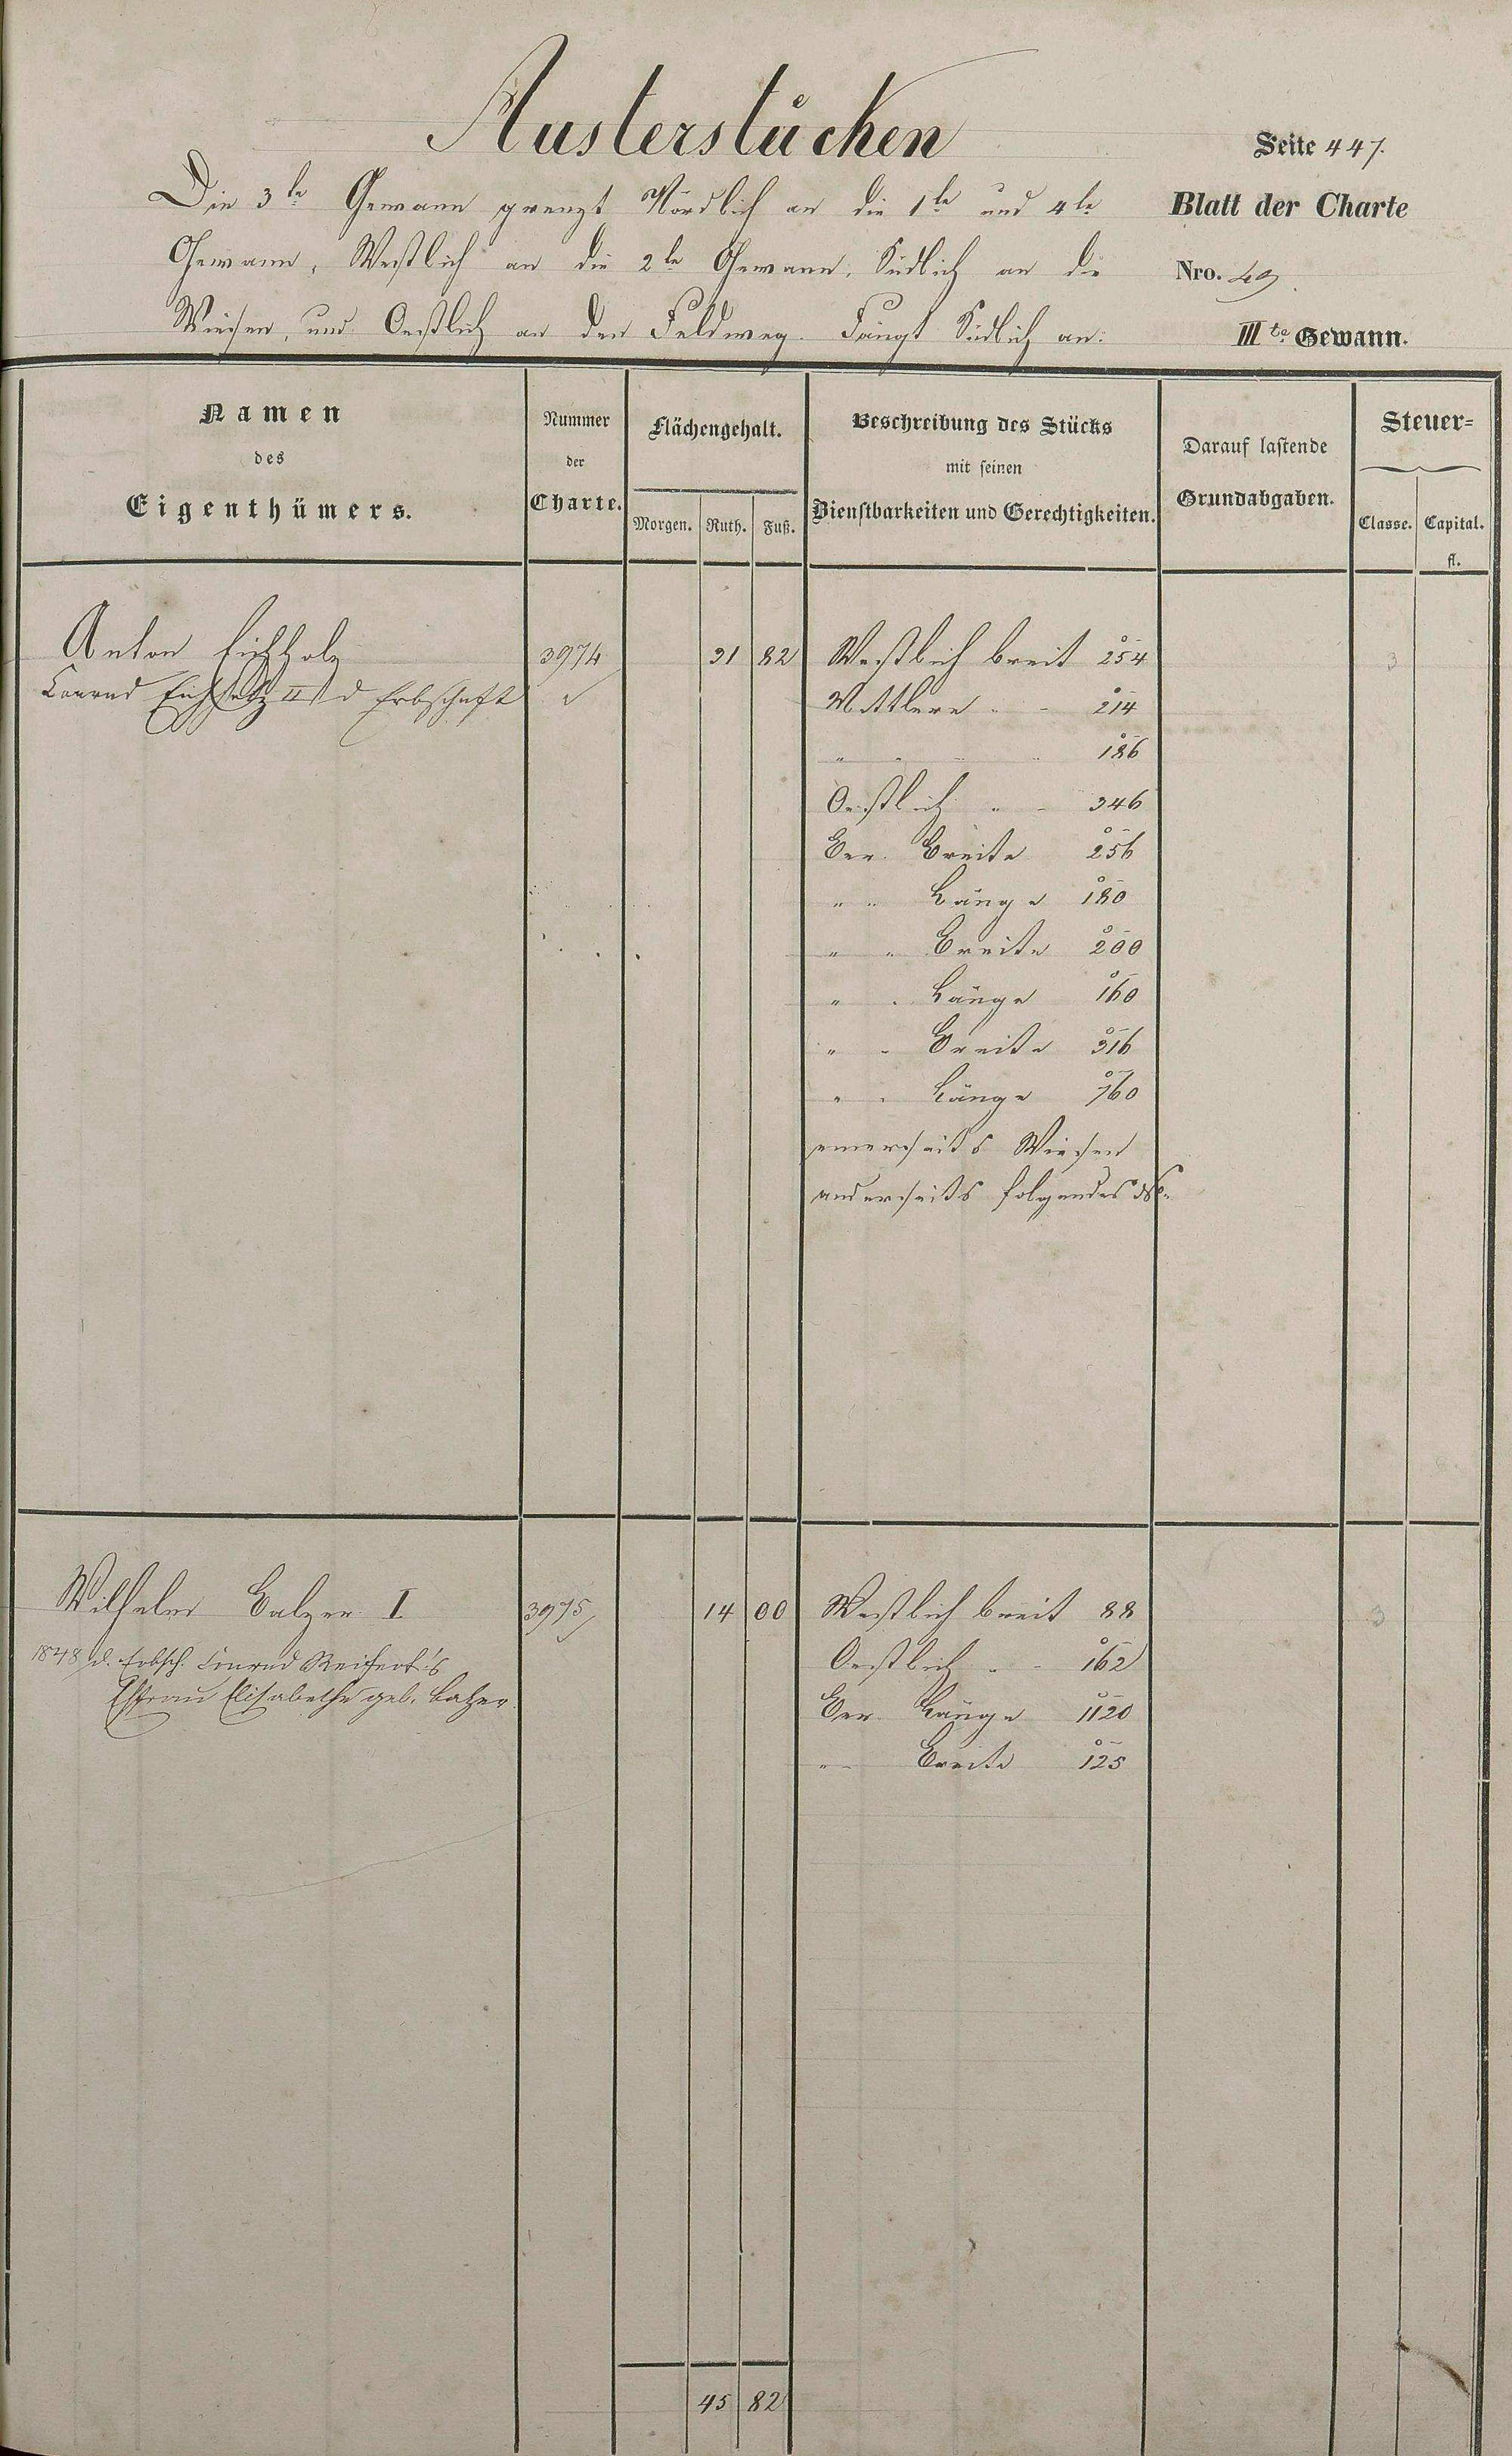 Austerstücken
Seite 447.
Die 3te Gewann grenzt Nördlich an die 1te und 4te
Blatt der Charte
Gewann, Westlich an die 2te Gewann, Südlich an die
Nro. 49.
Wiesen, und Oestlich an den Feldweg. Fängt Südlich an:
IIIte Gewann.
Namen
des
Eigenthümers.
Nummer
der
Charte.
Flächengehalt.
Morgen. Ruth. Fuß.
Beschreibung des Stücks
mit seinen
Dienstbarkeiten und Gerechtigkeiten.
Darauf lastende
Grundabgaben.
Steuer=
Classe. Capital.
fl.
Anton Eichholz 3974 31 82 Westlich breit 254 3
Conrad Eichholz II d Erbschaft
Mittlere " - 214
" " - " 186
Oestlich " - 346
Ber. Breite 256
" " Länge 180
" " Breite 200
" " Länge 160
" " Breite 316
" " Länge 760
einerseits Wiesen
anderseits folgendes
Wilhelm Balzer I 3975 14 00 Westlich breit 88 3
1848 d. Erbsch. Conrad Reifert's
Oestlich " - 162
Ehfrau Elisabetha geb. Balzer.
Ber. Länge 1120
" - Breite 125
45 82